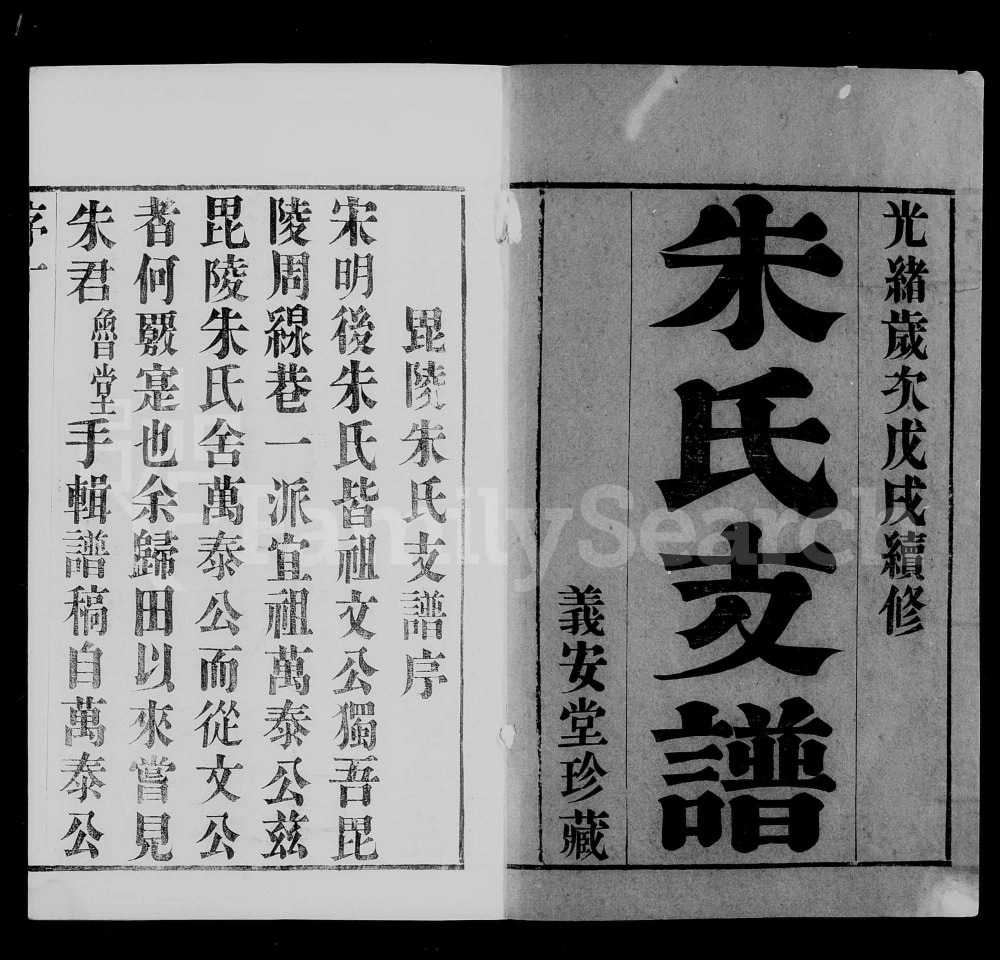 光緒歲次戊戌續修
朱氏支譜
義安堂珍藏
毘陵朱氏支譜序
宋明後朱氏皆祖文公獨吾毘
陵周線巷一派宜祖萬泰公茲
毘陵朱氏舍萬泰公而從文公
者何厯寔也余歸田以來嘗見
朱君魯堂手輯譜稿自萬泰公
序一
FamilySearch